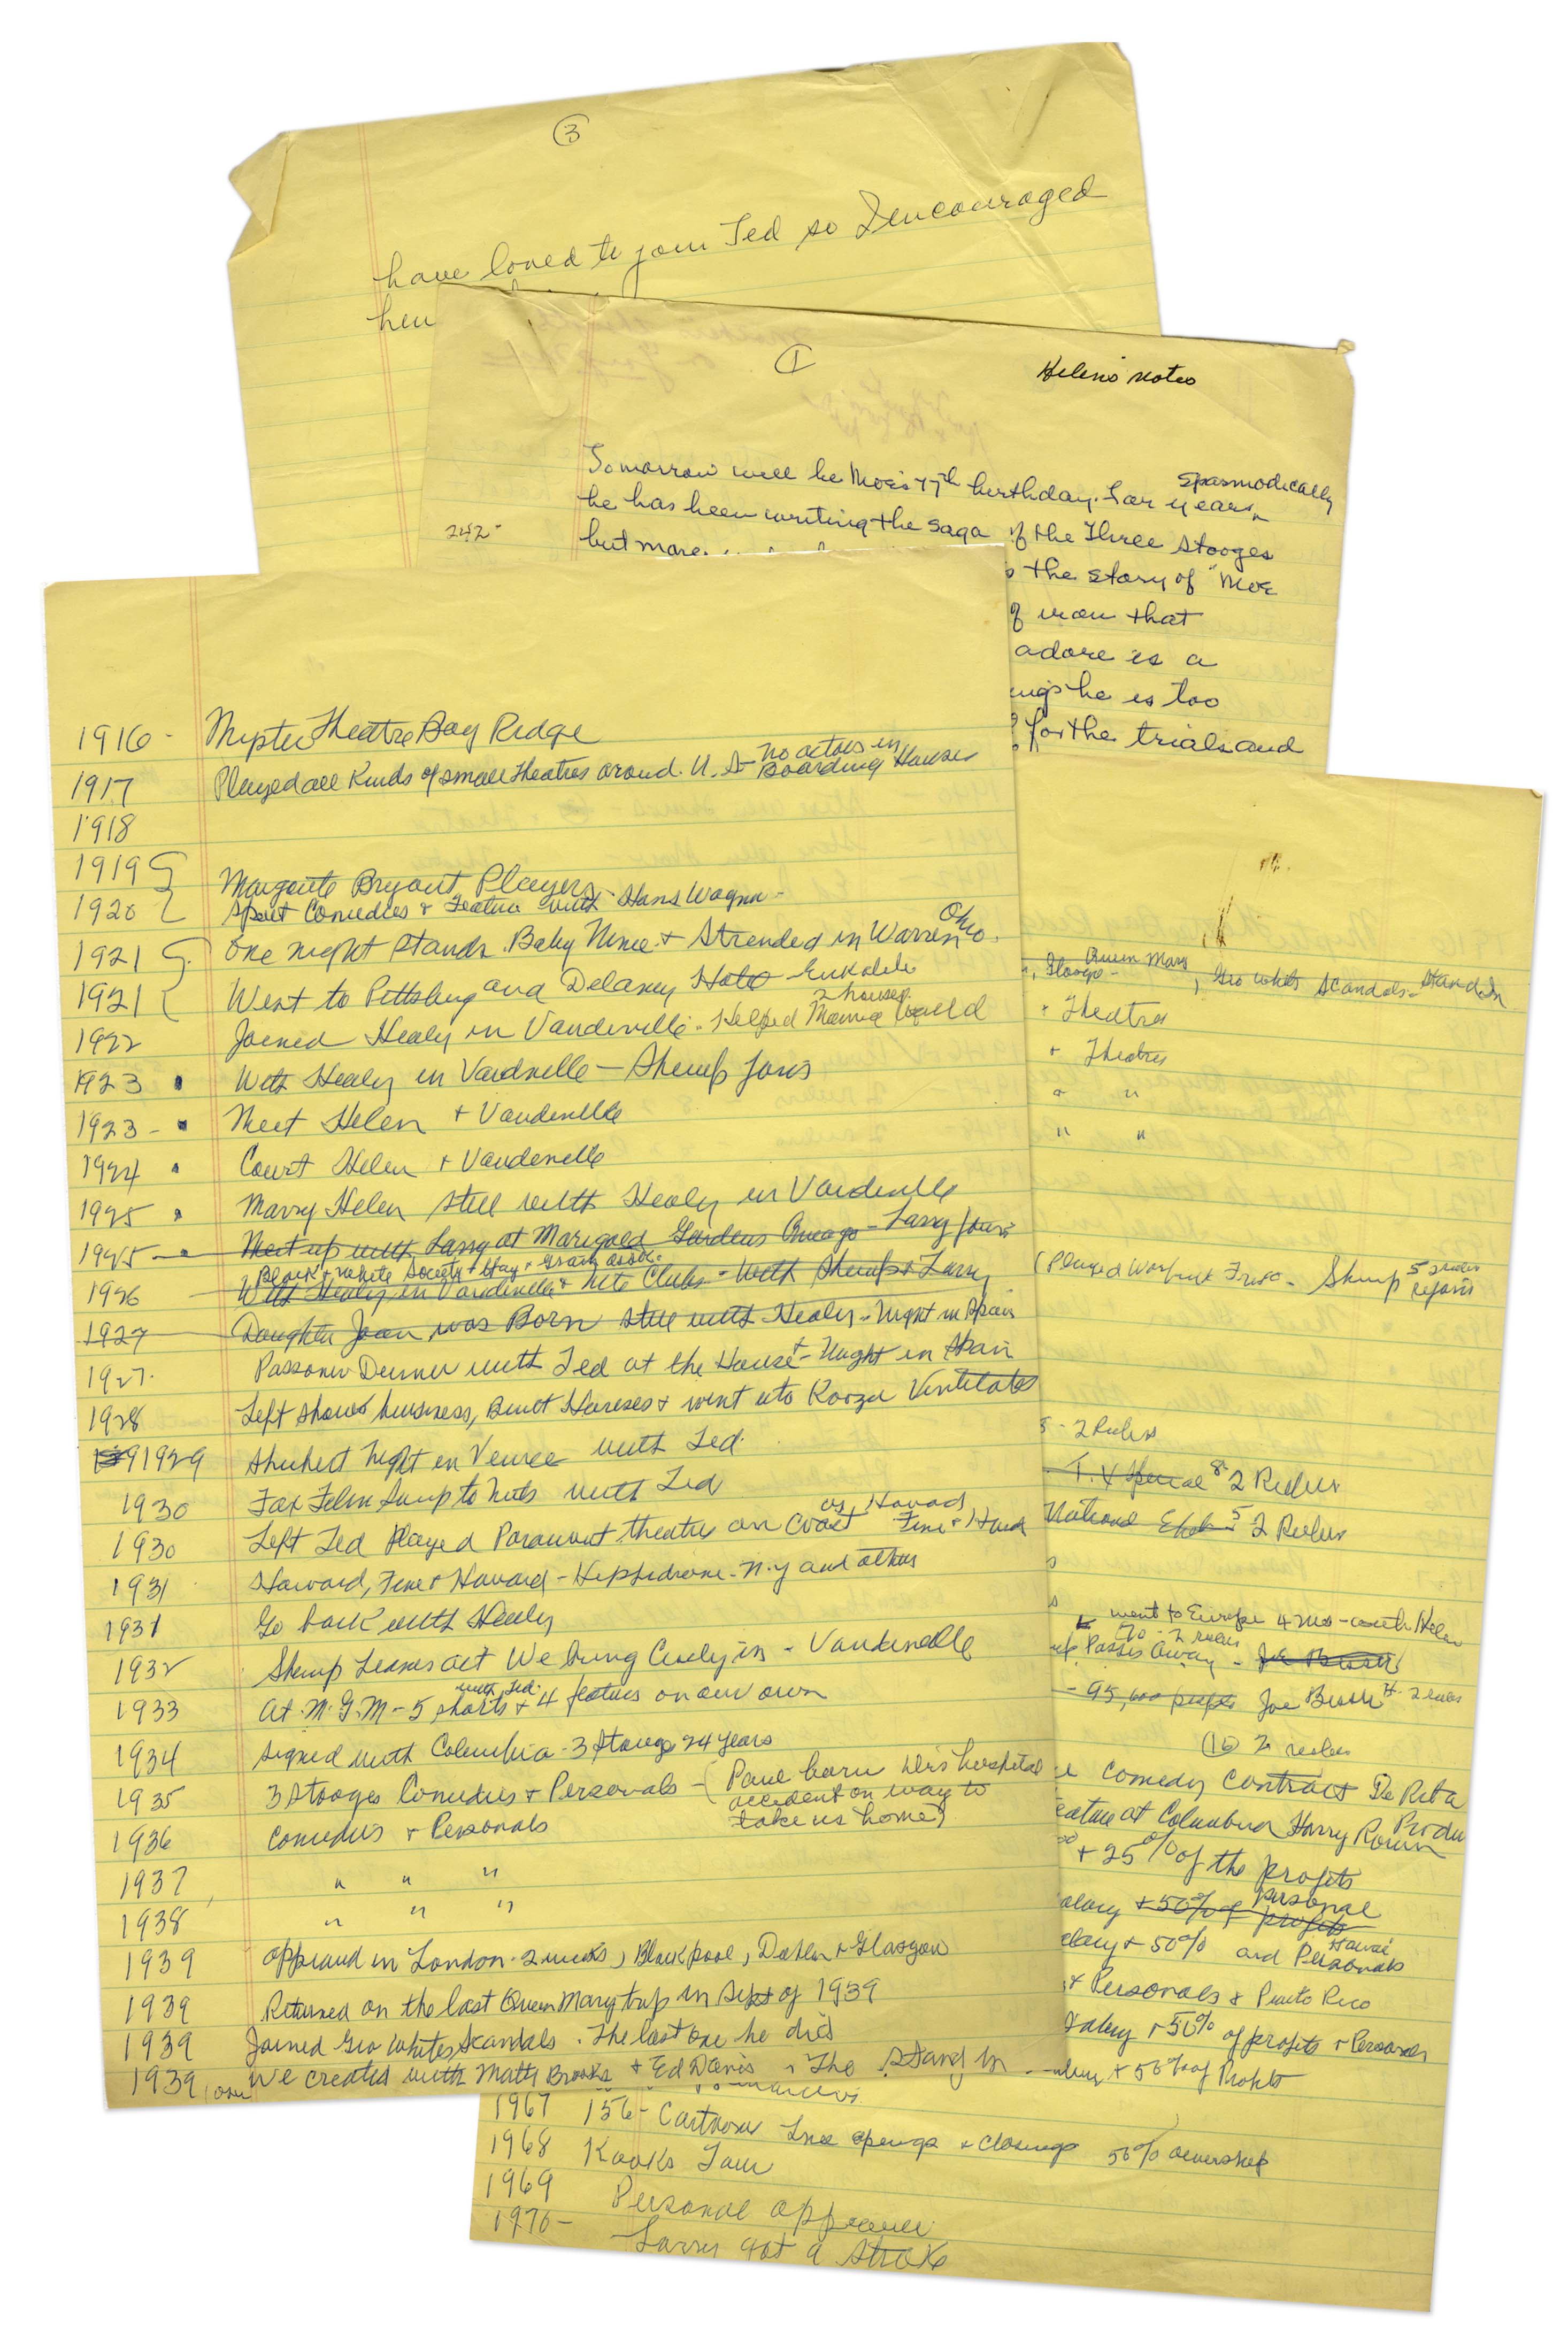 3
have loved to join Ted so I encouraged
1
Helen's notes
Tomorrow will be Moe's 77th birthday. For years spasmodically
he has been writing the saga of the Three Stooges
242-
but more
the story of "Moe
of iron that
adore is a
he is too
for the trials and
1916 - Theatre Bay Ridge
1917 Played all Kinds of small theatres around U.S - no actors in Boarding Houses
1918
1919 Bryant Players
1920 Comedies + Feature with Hans Wagner -
1921 One night stands. Baby Mine + Stranded in Warren Ohio.
1921 Went to Pittsburg and Delaney
1922 Joined Healy in Vaudeville - Helped build 2 houses
1923 With Healy in Vaudville - Shemp Joins
1923 - Meet Helen + Vaudeville
1924 Court Helen + Vaudeville
1925 Marry Helen still with Healy in Vaudeville
1925 Meet up with Larry at Marigold Gardens Chicago - Larry joins
Black + White Society + Hay + Grain Assoc.
1926 With Healy in Vaudeville + Nite Clubs - With Shemp + Larry
1927 Daughter Joan was Born still with Healy - Night in Spain
1927. Passover Dinner with Ted at the House + Night in Spain
1928 Left show business, Built Houses + went into Ventilators
1929 Shubert Night in Venice with Ted.
1930 Fox Film Soup to Nuts with Ted
1930 Left Ted Played Paramount theatre on Coast as Howard Fine + Howard
1931 Howard, Fine + Howard - Hippodrome - N.Y and others
1931 Go back with Healy
1932 Shemp Leaves act We bring Curly in - Vaudeville
1933 At M.G.M - 5 shorts with Ted + 4 features on our own
1934 Signed with Columbia - 3 Stooges 24 years
1935 3 Stooges Comedies + Personals - (Paul born
accident on way to
take us home)
1936 Comedies + Personals
1937 " " "
1938 " " "
1939 Appeard in London - 2 weeks, Blackpool, Dublin + Glasgow
1939 Returned on the last Queen Mary trip in Sept of 1939
1939 Joined Geo Whites Scandals. The last one he did
1939 We created with Matty Brooks + Ed Davis The Stand In
Queen Mary
Stooges - , Geo Whites Scandals - Stand In
+ Theatres
+ Theatres
" "
" "
(Played - Shemp rejoins 5 2 reelers
5 - 2 Reelers
T.V Special 8 - 2 Reelers
National 5 2 Reelers
went to Europe 4 mos - with Helen
2 reelers
Passes Away - Joe Besser
- 95,000 people Joe Besser 2 reelers
(16) 2 reelers
Comedy Contract De Rita
at Columbia Harry Romm Produ
+ 25% of the profits
+ 50% of profits personal
+ 50% and Personals Hawaii
+ Personals + Puerto Rico
Salary + 50% of profits + Personals
+ 50% of Profits
1967 156 - Cartoons Live openings + closings 50% ownership
1968 Kooks Tour
1969 Personal appearance
1970 - Larry got a stroke